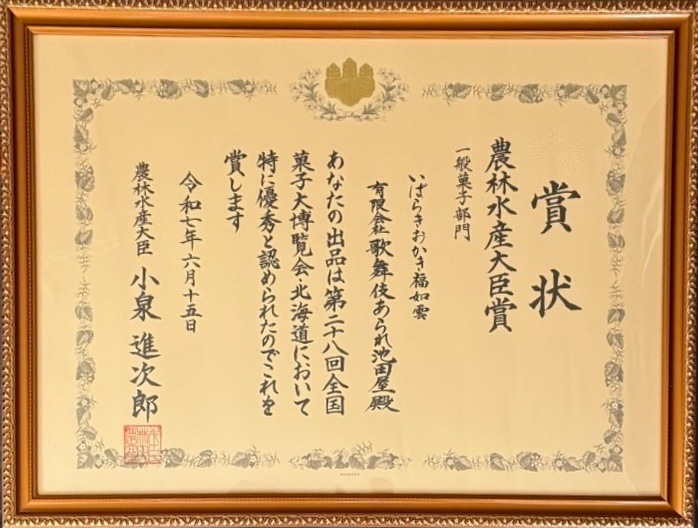 賞状
農林水産大臣賞
一般菓子部門
いばらきおかき福如雲
有限会社歌舞伎あられ池田屋殿
あなたの出品は第二十八回全国
菓子大博覧会北海道において
特に優秀と認められたのでこれを
賞します
令和七年六月十五日
農林水産大臣 小泉進次郎